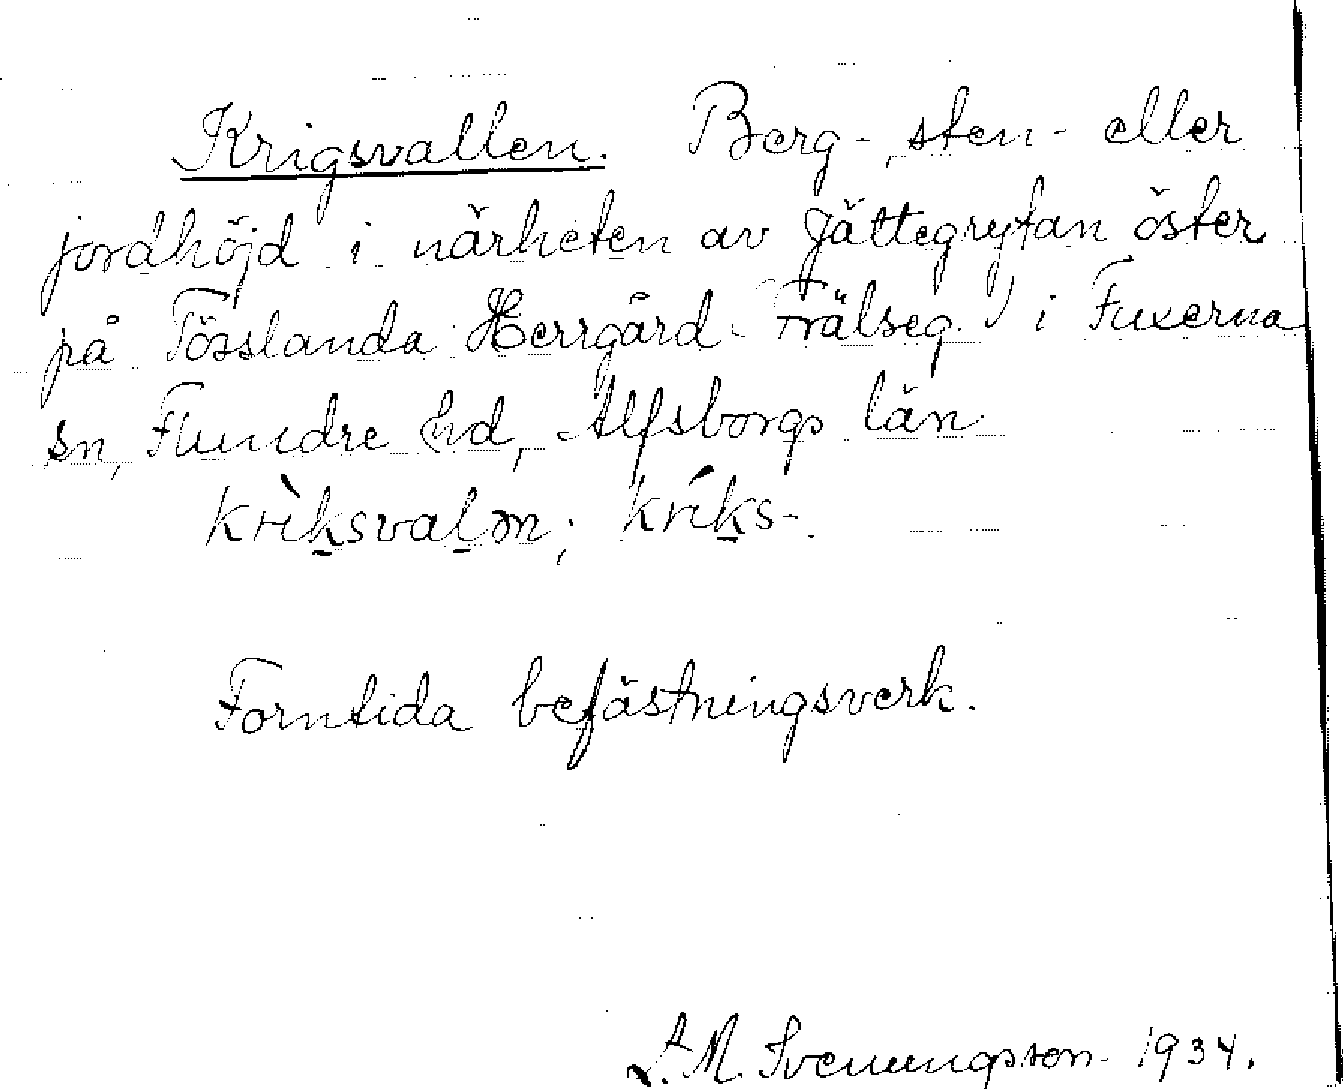 Krigsvallen. Berg-, sten- eller
jordhöjd i närheten av Jättegrytan öster
på Tösslanda Herrgård (Frälseg.) i Fuxerna
sn, Flundre hd, Älfsborgs län
krìk̲sval̲ən; krík̲s-.
Forntida befästningsverk.
L. M. Svenungsson 1934.